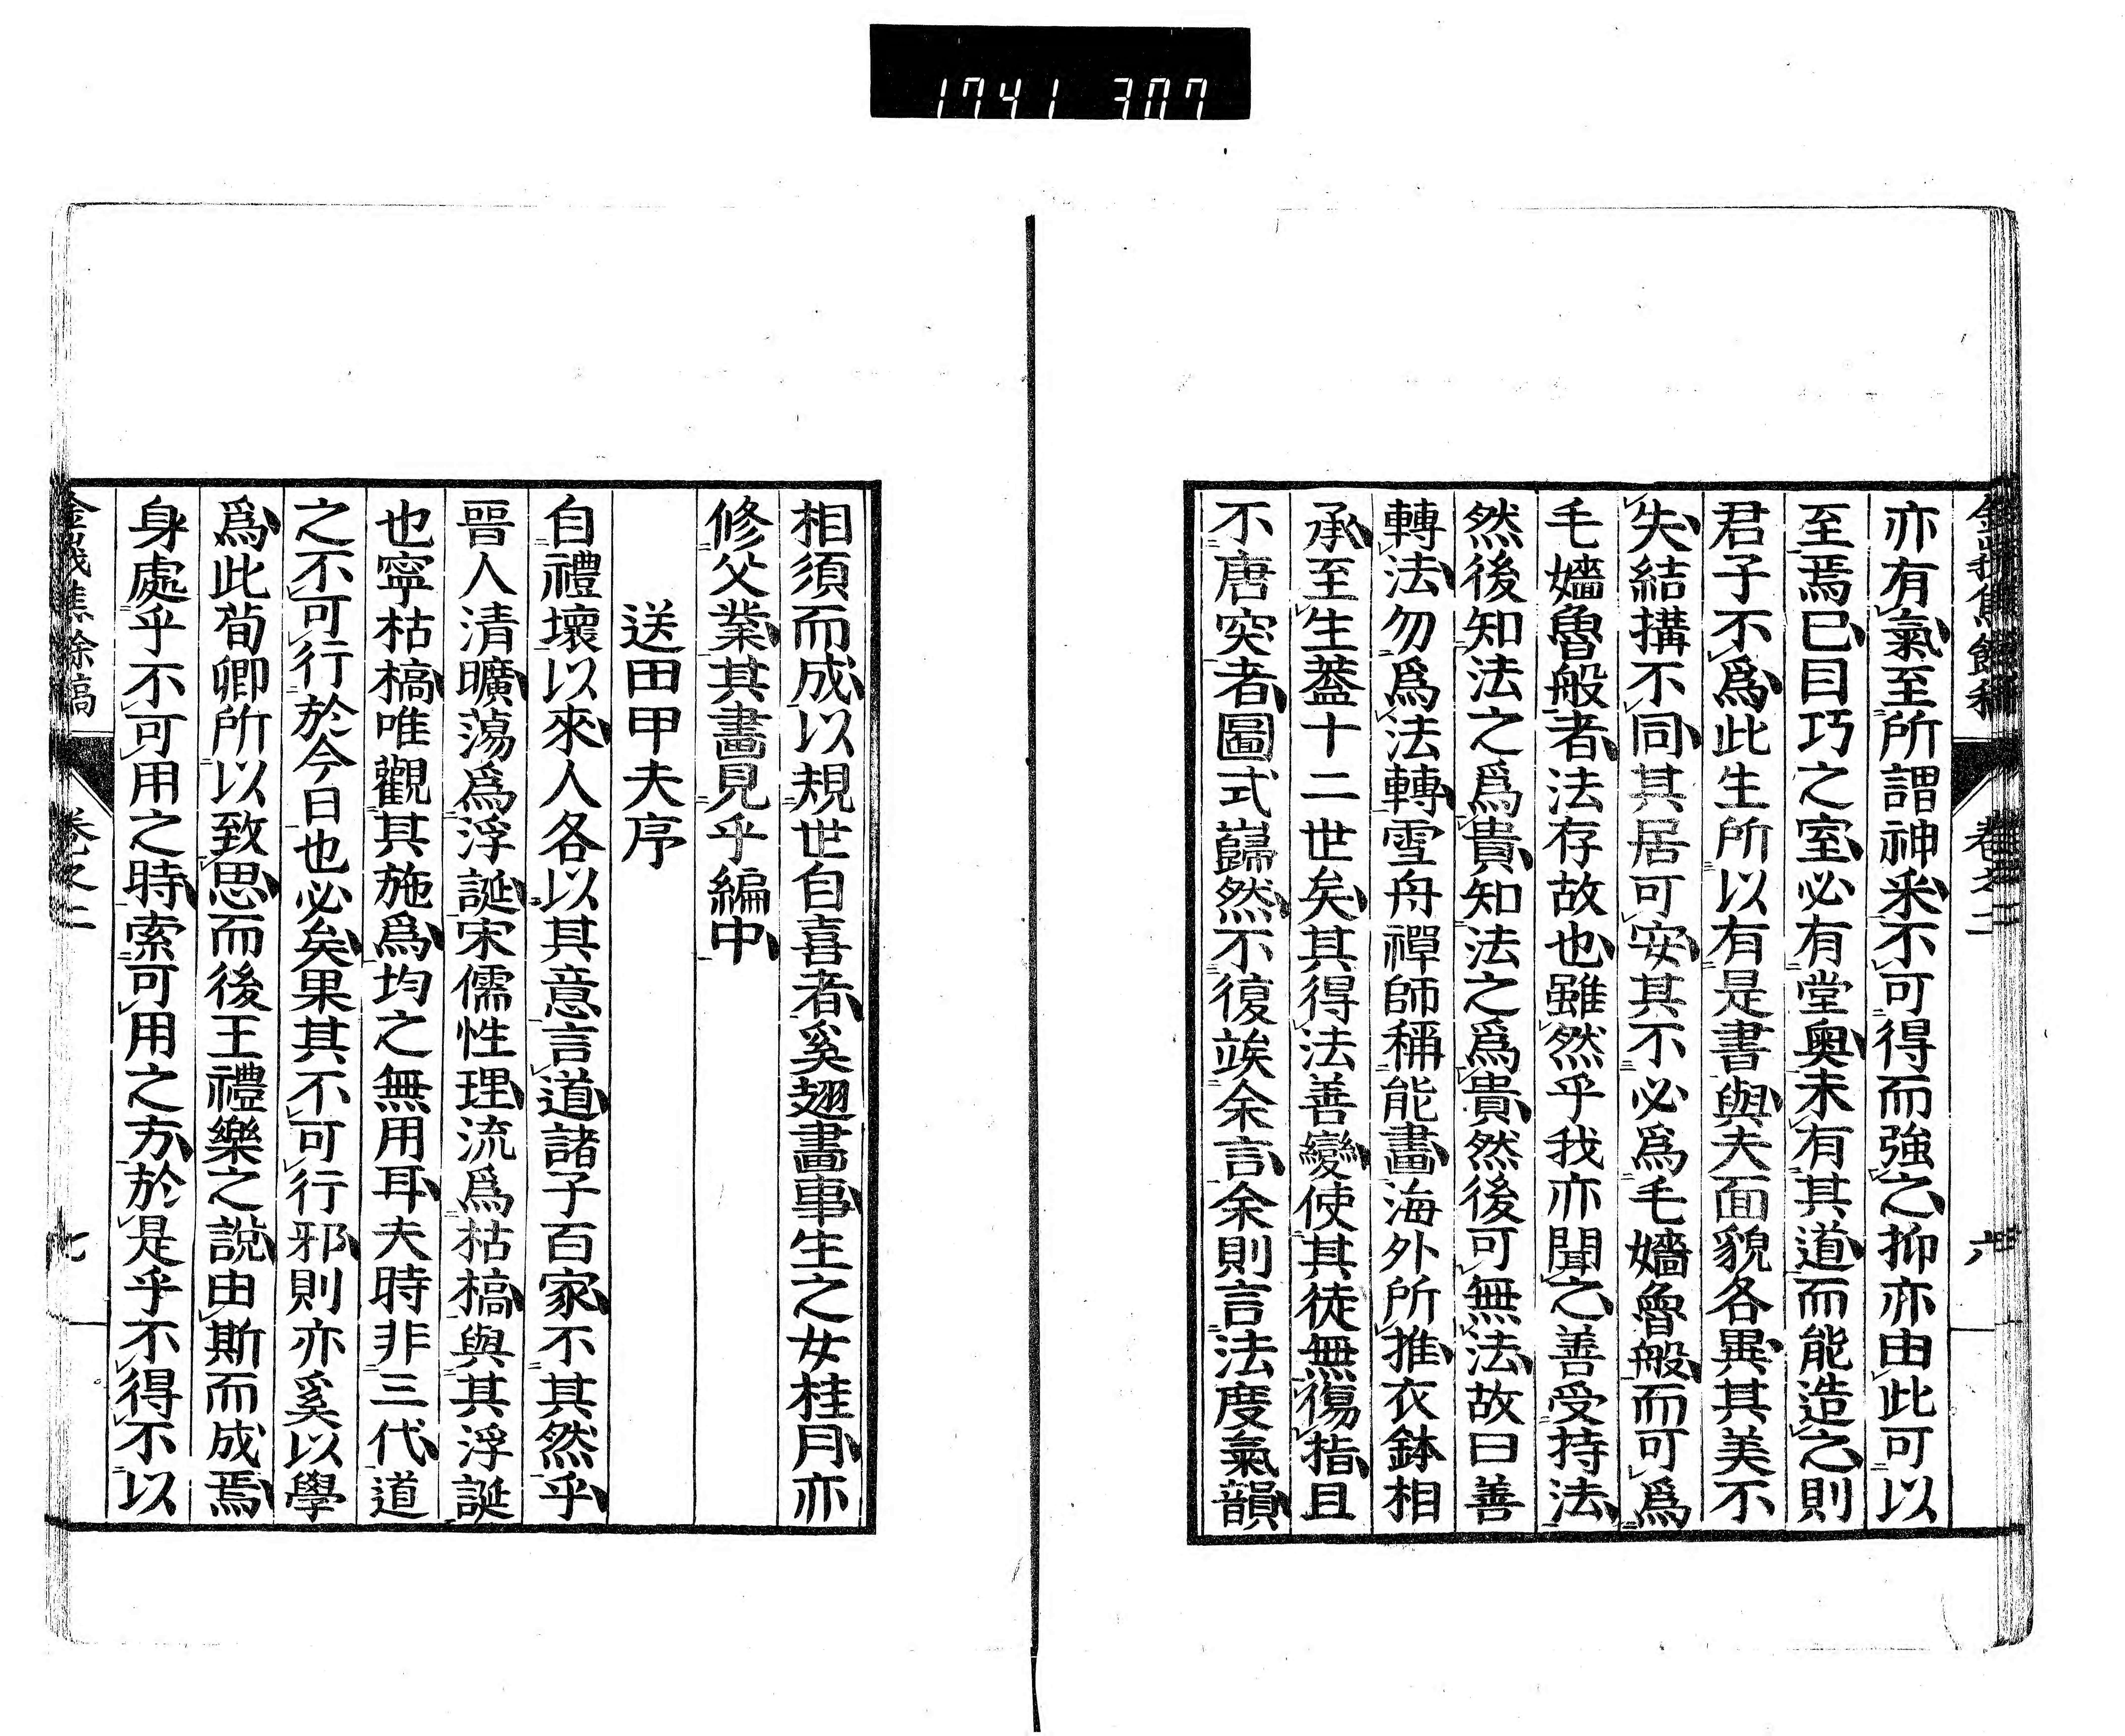 1741 307
亦有氣至所謂神乎不可得而強之抑亦由此可以
至焉已目巧之室必有堂奧未有其道而能造之則
君子不爲此生所以有是書與夫面貌各異其美不
失結搆不同其居可安其不必爲毛嬙魯般而可爲
毛嬙魯般者法存故也雖然乎我亦聞之善受持法
然後知法之爲貴知法之爲貴然後可無法故曰善
轉法勿爲法轉雪舟禪師稱能畫海外所推衣鉢相
承至生葢十二世矣其得法善變使其徒無傷指且
不唐突者圖式巋然不復竢余言余則言法度氣韻
相須而成以規世自喜者奚翅畫事生之女桂月亦
修父業其畫見乎編中
送田甲夫序
自禮壞以來人各以其意言道諸子百家不其然乎
晉人清曠蕩爲浮誕宋儒性理流爲枯槁與其浮誕
也寧枯槁唯觀其施爲均之無用耳夫時非三代道
之不可行於今日也必矣果其不可行邪則亦奚以學
爲此荀卿所以致思而後王禮樂之說由斯而成焉
身處乎不可用之時索可用之方於是乎不得不以
卷之二
七